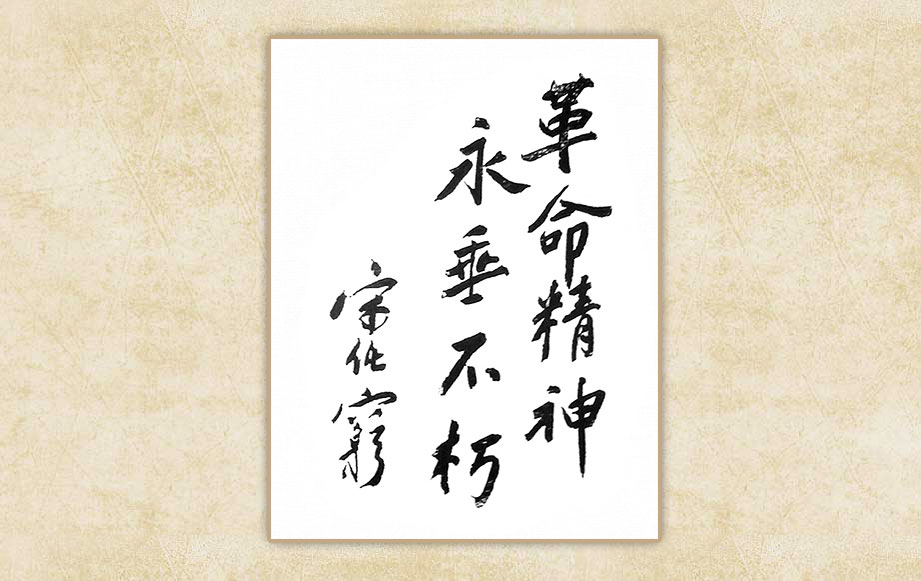 革命精神
永垂不朽
宋任窮